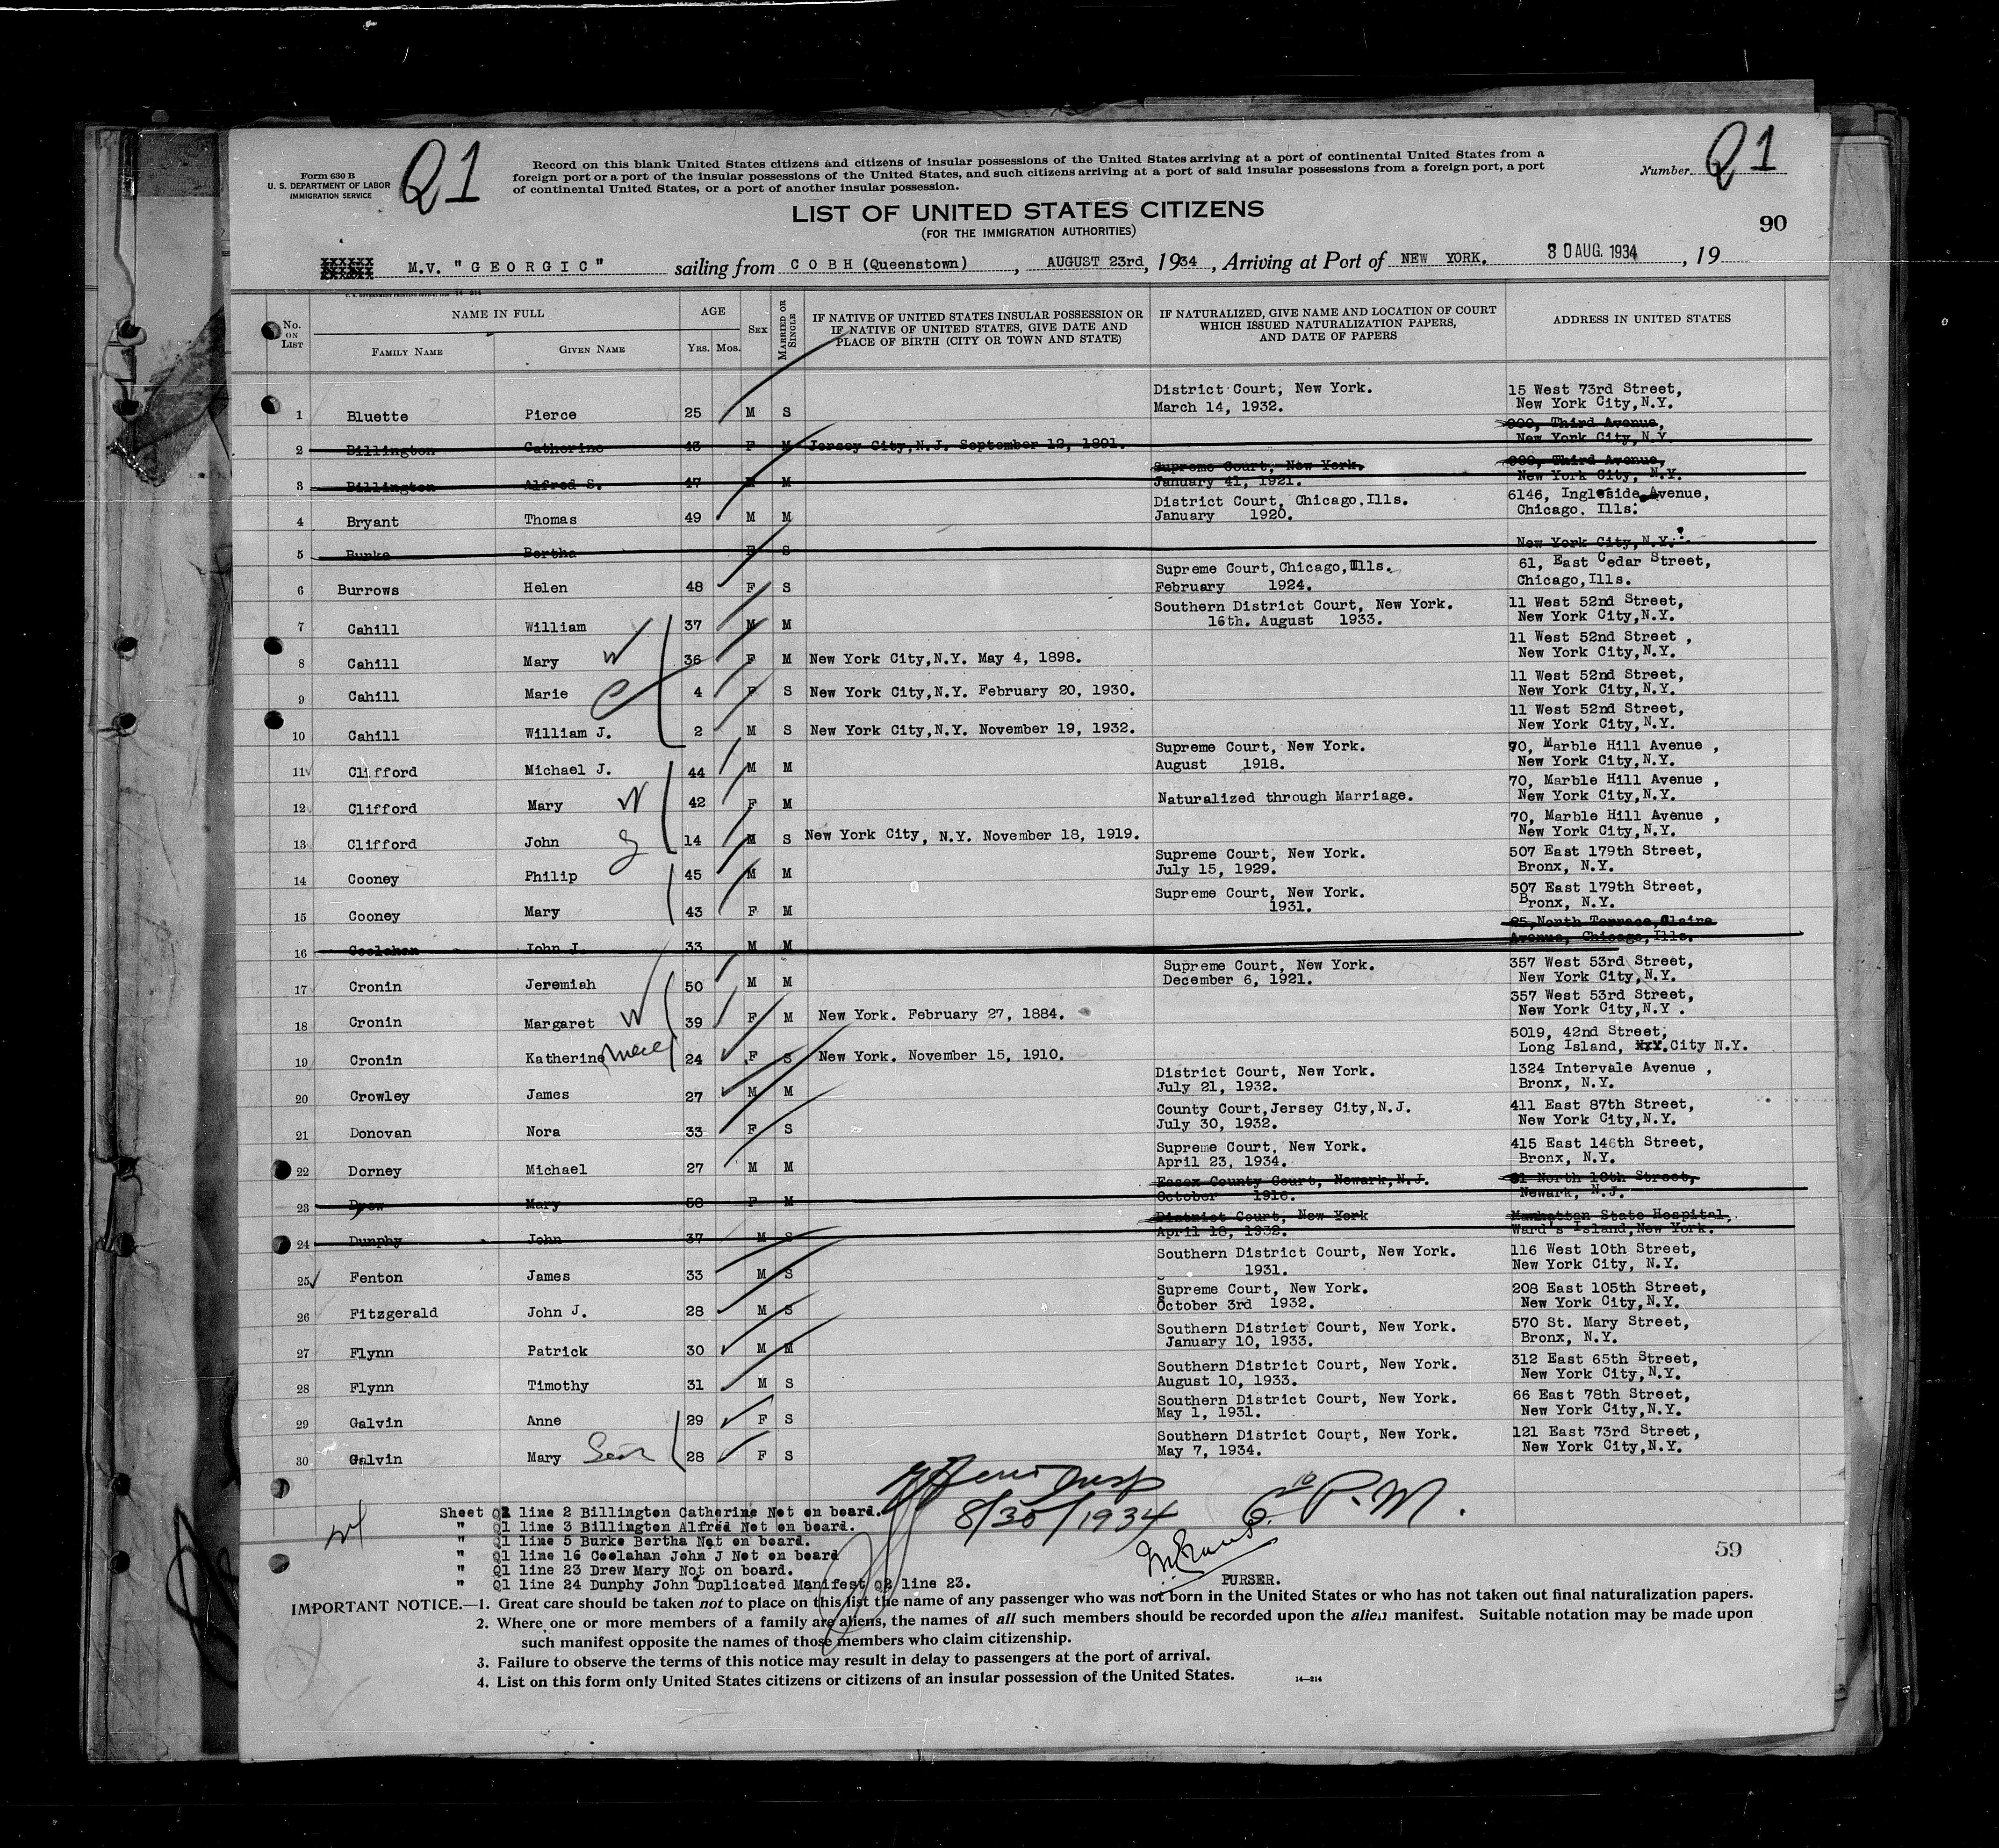 Form 630 B
U. S. DEPARTMENT OF LABOR
IMMIGRATION SERVICE
Q1
Record on this blank United States citizens and citizens of insular possessions of the United States arriving at a port of continental United States from a
foreign port or a port of the insular possessions of the United States, and such citizens arriving at a port of said insular possessions from a foreign port, a port
of continental United States, or a port of another insular possession.
Number Q1
LIST OF UNITED STATES CITIZENS
(FOR THE IMMIGRATION AUTHORITIES)
90
M.V. "GEORGIC" sailing from COBH (Queenstown), AUGUST 23rd, 1934, Arriving at Port of NEW YORK. 30 AUG. 1934, 19
No. ON LIST NAME IN FULL FAMILY NAME GIVEN NAME AGE YRS. MOS. SEX MARRIED OR SINGLE IF NATIVE OF UNITED STATES INSULAR POSSESSION OR IF NATIVE OF UNITED STATES, GIVE DATE AND PLACE OF BIRTH (CITY OR TOWN AND STATE) IF NATURALIZED, GIVE NAME AND LOCATION OF COURT WHICH ISSUED NATURALIZATION PAPERS, AND DATE OF PAPERS ADDRESS IN UNITED STATES
1 Bluette Pierce 25 M S District Court, New York. March 14, 1932. 15 West 73rd Street, New York City,N.Y.
2 Billington Catherine 43 F M Jersey City,N.J. September 12, 1891. Third Avenue, New York City,N.Y.
3 Billington Alfred S. 47 M M Supreme Court, New York. January 41, 1921. Third Avenue, New York City, N.Y.
4 Bryant Thomas 49 M M District Court, Chicago,Ills. January 1920. 6146, Ingleside Avenue, Chicago. Ills.
5 Burke Bertha F S New York City,N.Y.
6 Burrows Helen 48 F S Supreme Court,Chicago,Ills. February 1924. 61, East Cedar Street, Chicago,Ills.
7 Cahill William 37 M M Southern District Court, New York. 16th. August 1933. 11 West 52nd Street, New York City,N.Y.
8 Cahill Mary W 36 F M New York City,N.Y. May 4, 1898. 11 West 52nd Street , New York City,N.Y.
9 Cahill Marie C 4 F S New York City,N.Y. February 20, 1930. 11 West 52nd Street, New York City,N.Y.
10 Cahill William J. 2 M S New York City,N.Y. November 19, 1932. 11 West 52nd Street, New York City,N.Y.
11 Clifford Michael J. 44 M M Supreme Court, New York. August 1918. 70, Marble Hill Avenue , New York City,N.Y.
12 Clifford Mary W 42 F M Naturalized through Marriage. 70, Marble Hill Avenue , New York City,N.Y.
13 Clifford John 14 M S New York City, N.Y. November 18, 1919. 70, Marble Hill Avenue , New York City,N.Y.
14 Cooney Philip 45 M M Supreme Court, New York. July 15, 1929. 507 East 179th Street, Bronx, N.Y.
15 Cooney Mary 43 F M Supreme Court, New York. 1931. 507 East 179th Street, Bronx, N.Y.
16 Coolahan John J. 33 M M North Terrace,Claire Avenue, Chicago,Ills.
17 Cronin Jeremiah 50 M M Supreme Court, New York. December 6, 1921. 357 West 53rd Street, New York City,N.Y.
18 Cronin Margaret W 39 F M New York. February 27, 1884. 357 West 53rd Street, New York City,N.Y .
19 Cronin Katherine 24 F S New York. November 15, 1910. 5019, 42nd Street, Long Island, City N.Y.
20 Crowley James 27 M M District Court, New York. July 21, 1932. 1324 Intervale Avenue , Bronx, N.Y.
21 Donovan Nora 33 F S County Court,Jersey City,N.J. July 30, 1932. 411 East 87th Street, New York City,N.Y.
22 Dorney Michael 27 M M Supreme Court, New York. April 23, 1934. 415 East 146th Street, Bronx, N.Y.
23 Drew Mary 58 F M Essex County Court, Newark,N.J. October 1916. North 10th Street, Newark, N.J.
24 Dunphy John 37 M S District Court, New York April 18, 1932. Manhattan State Hospital, Ward's Island,New York.
25 Fenton James 33 M S Southern District Court, New York. 1931. 116 West 10th Street, New York City, N.Y.
26 Fitzgerald John J. 28 M S Supreme Court, New York. October 3rd 1932. 208 East 105th Street, New York City,N.Y.
27 Flynn Patrick 30 M M Southern District Court, New York. January 10, 1933. 570 St. Mary Street, Bronx, N.Y.
28 Flynn Timothy 31 M S Southern District Court, New York. August 10, 1933. 312 East 65th Street, New York City,N.Y.
29 Galvin Anne 29 F S Southern District Court, New York. May 1, 1931. 66 East 78th Street, New York City,N.Y.
30 Galvin Mary 28 F S Southern District Court, New York. May 7, 1934. 121 East 73rd Street, New York City,N.Y.
8/30/1934 6 10 P.M.
Sheet Q1 line 2 Billington Catherine Not on board.
" Q1 line 3 Billington Alfred Not on board.
" Q1 line 5 Burke Bertha Not on board.
" Q1 line 16 Coolahan John J Not on board
" Q1 line 23 Drew Mary Not on board.
" Q1 line 24 Dunphy John Duplicated Manifest Q2 line 23.
PURSER.
59
IMPORTANT NOTICE.—1. Great care should be taken not to place on this list the name of any passenger who was not born in the United States or who has not taken out final naturalization papers.
2. Where one or more members of a family are aliens, the names of all such members should be recorded upon the alien manifest. Suitable notation may be made upon
such manifest opposite the names of those members who claim citizenship.
3. Failure to observe the terms of this notice may result in delay to passengers at the port of arrival.
4. List on this form only United States citizens or citizens of an insular possession of the United States.
14—214